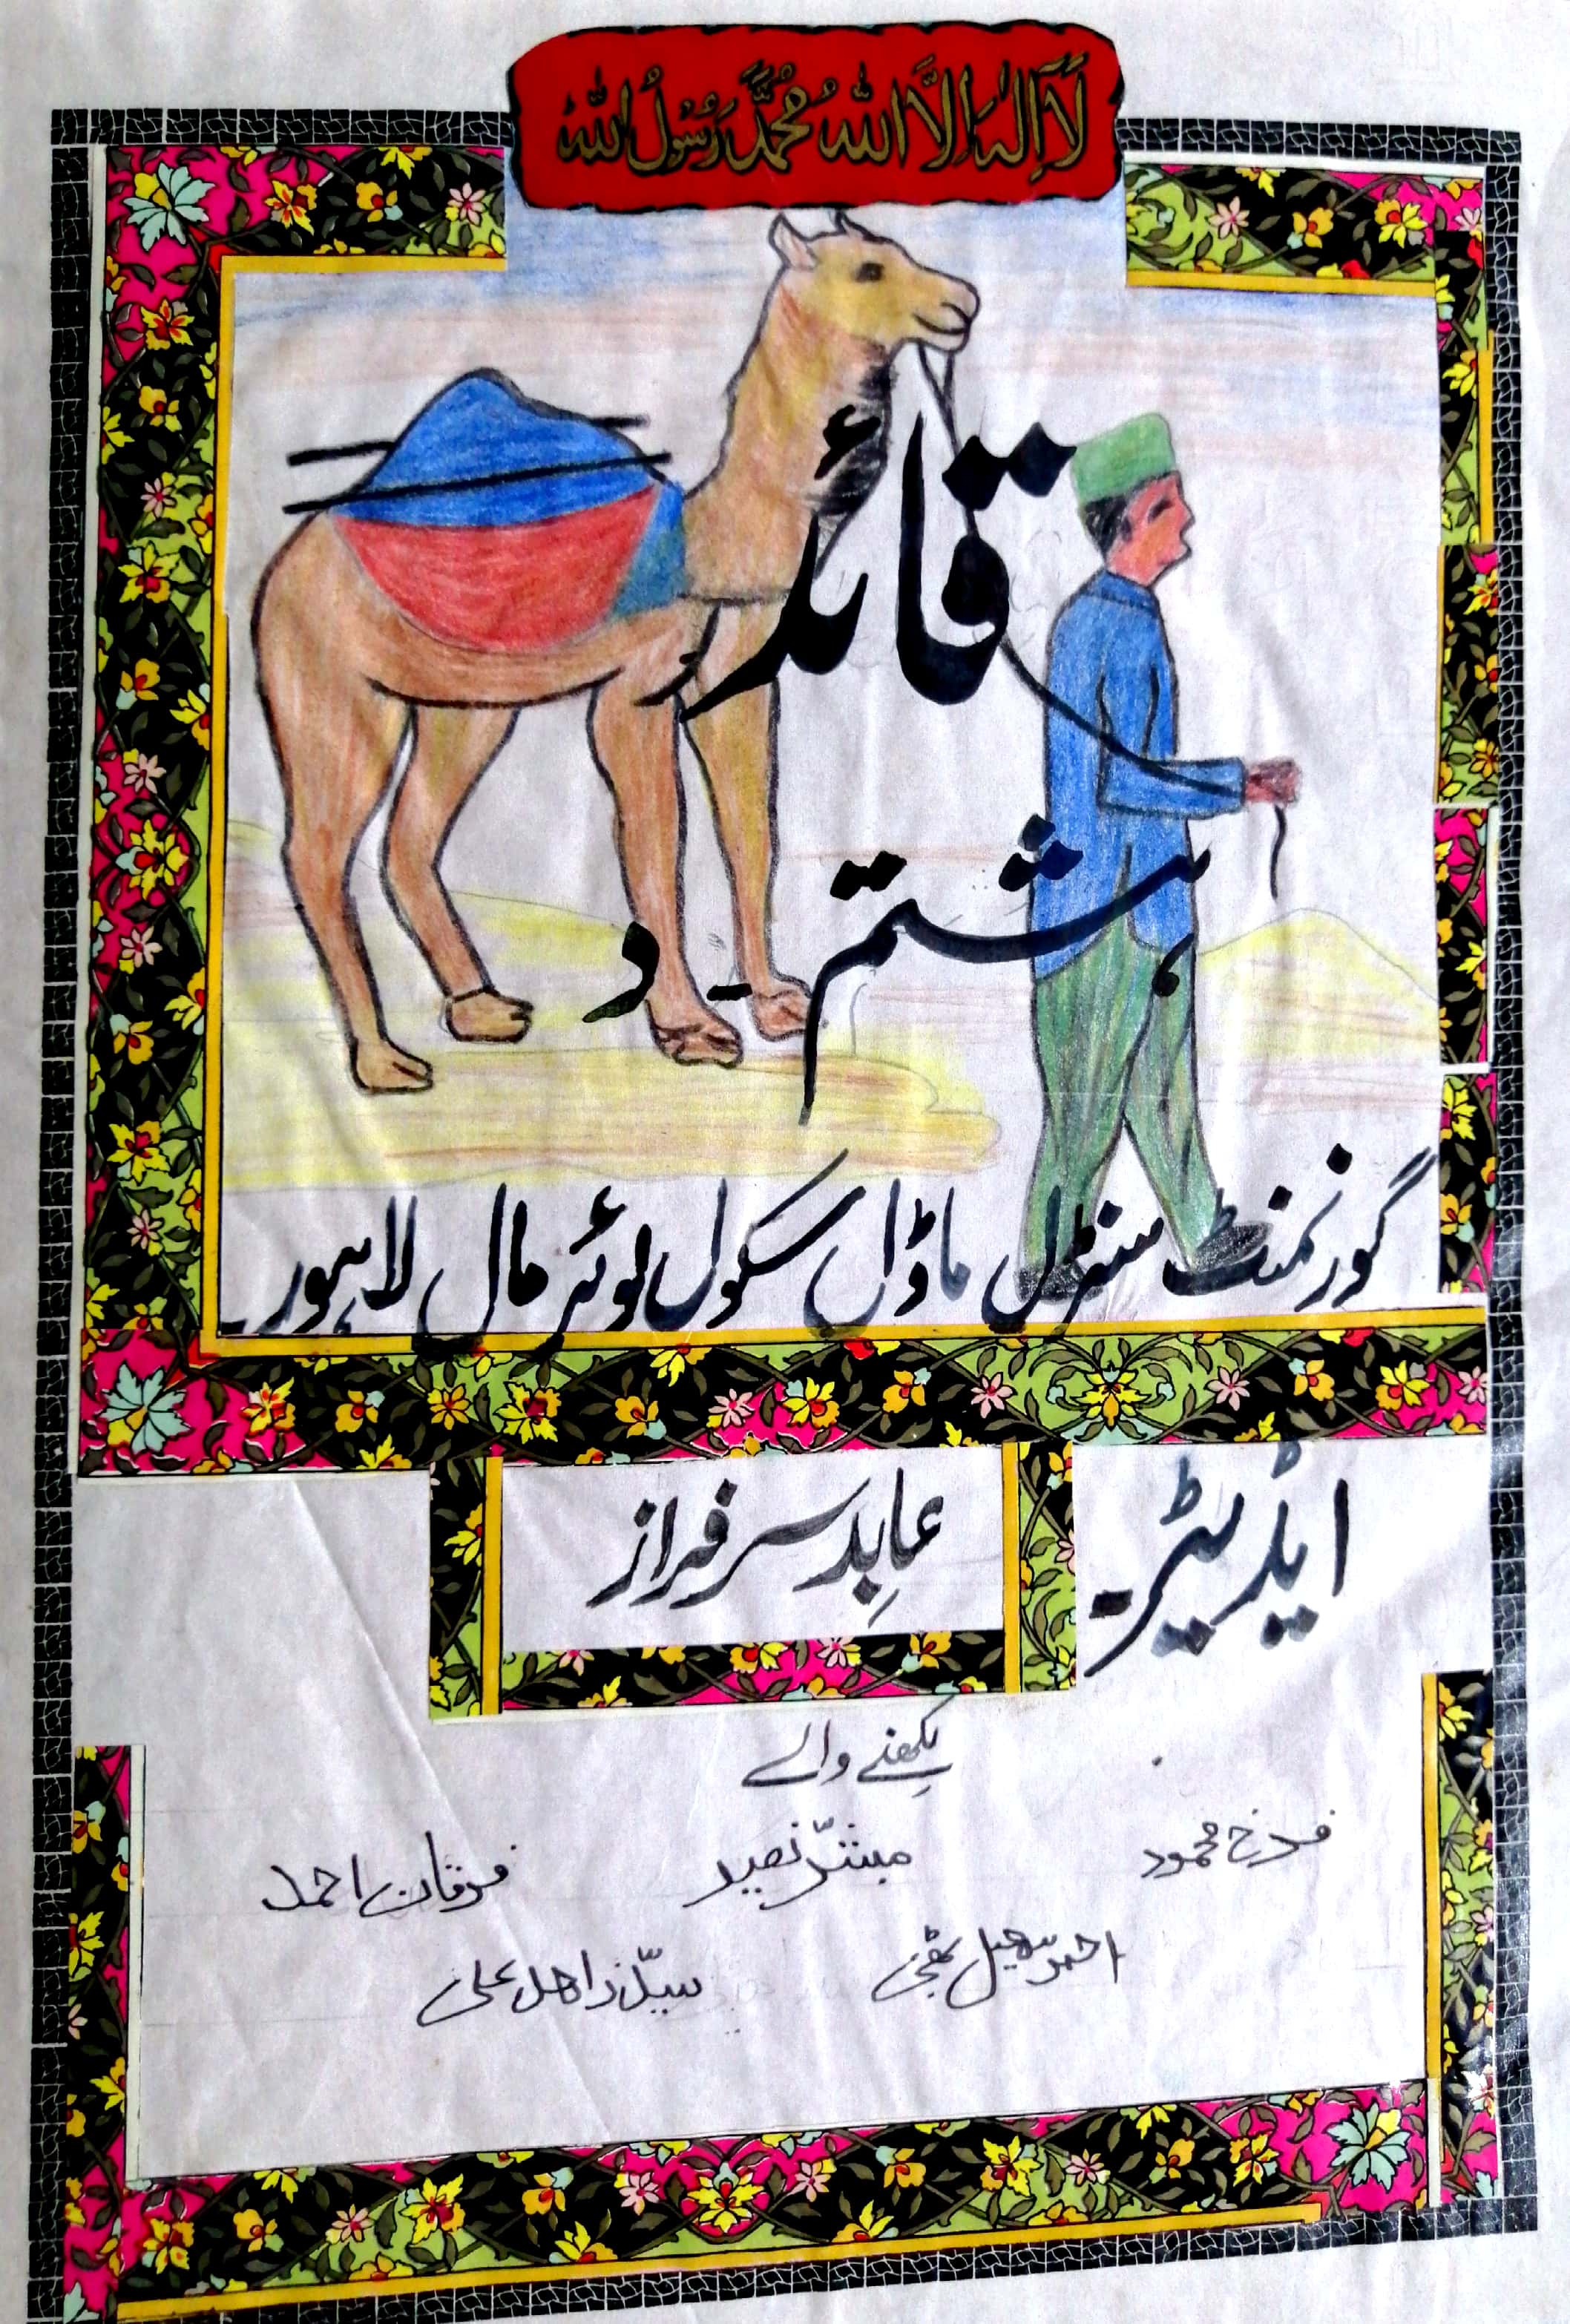 لَآ اِلٰہَ اِلَّا اللہُ مُحَمَّدٌ رَّسُوْلُ اللہِ
قائد
ہشتم - د
گورنمنٹ سنٹرل ماڈل سکول لوئر مال لاہور۔
ایڈیٹر۔ عابِد سرفراز
لِکھنے والے
فرخ محمود مبشّر نصیر فرقان احمد
احمد سہیل بھٹی سیّد زاھد علی